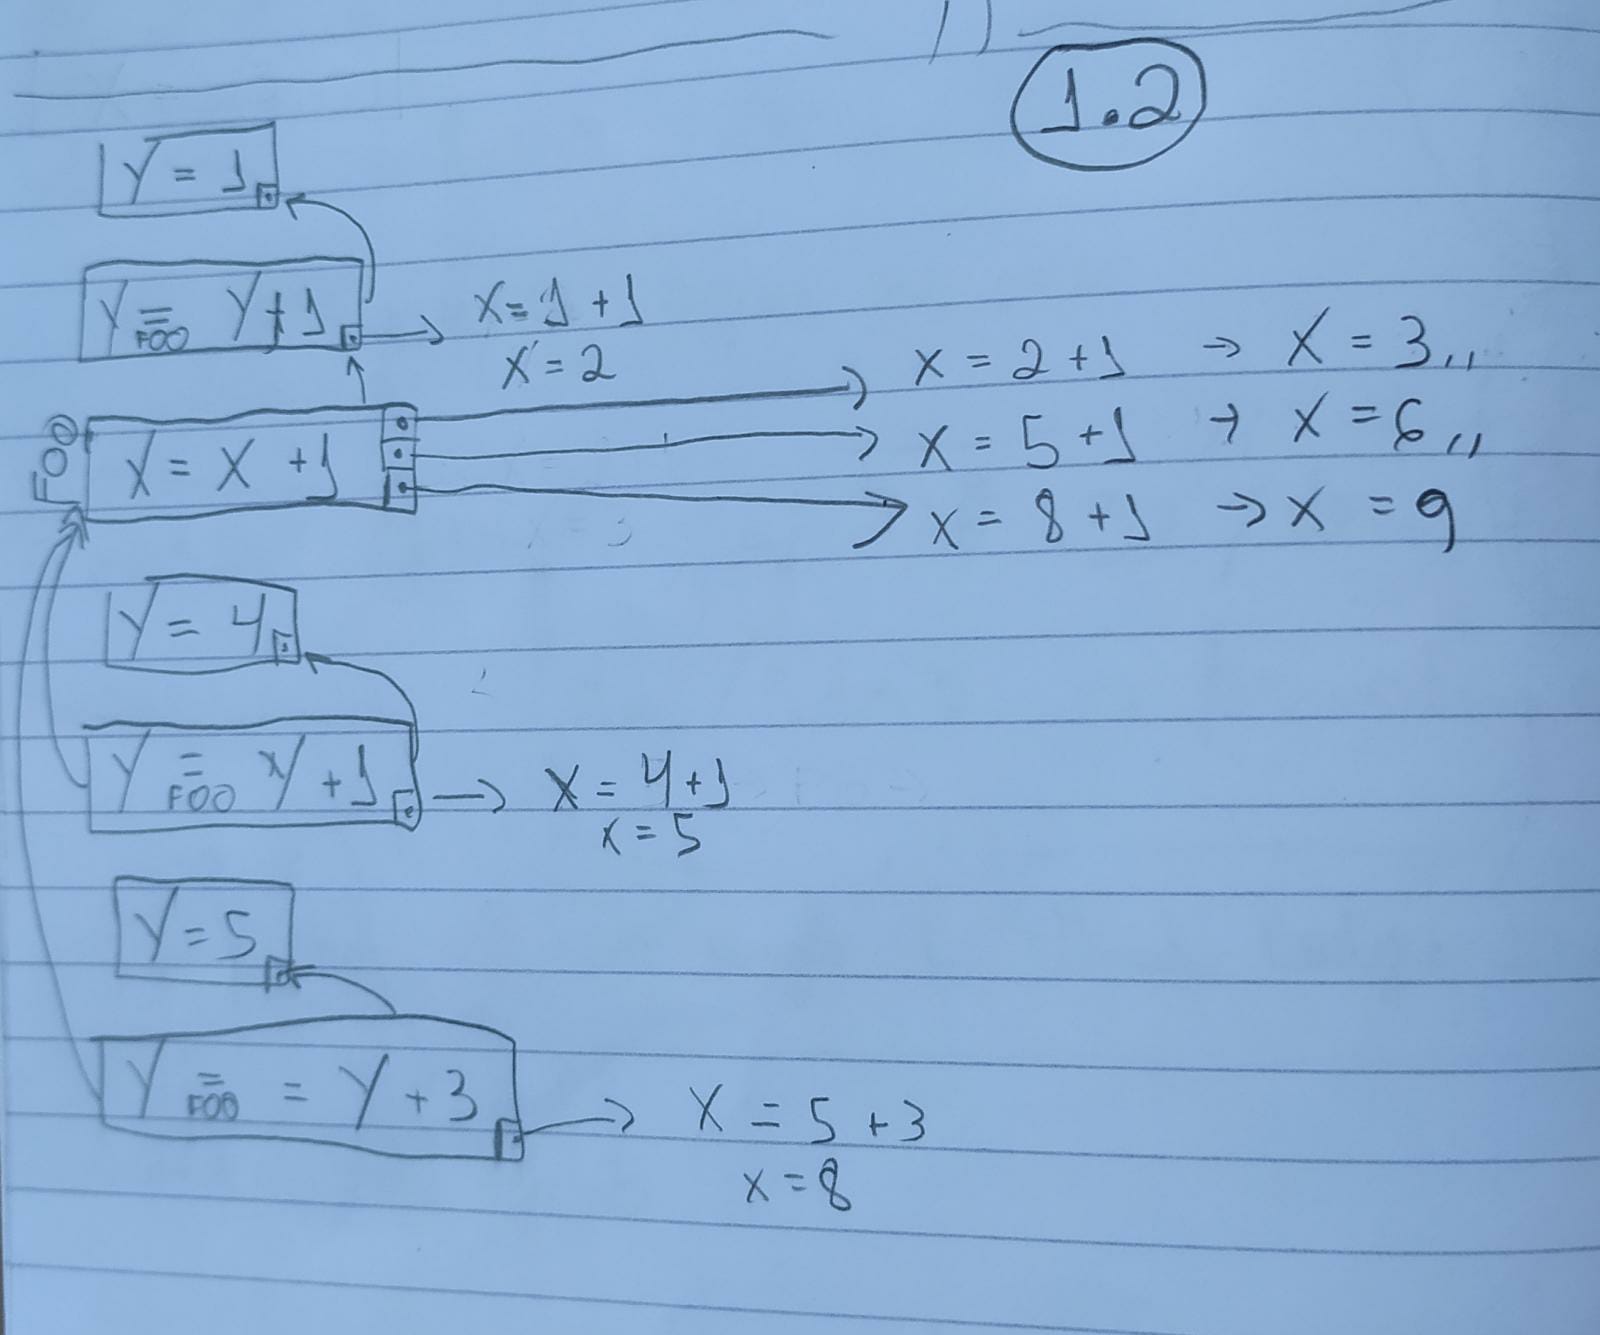 1.2
Y = 1
Y = FOO Y + 1 → X = 1 + 1
X = 2
FOO X = X + 1
X = 2 + 1 → X = 3,,
X = 5 + 1 → X = 6,,
X = 8 + 1 → X = 9
Y = 4
Y = FOO Y + 1 → X = 4 + 1
X = 5
Y = 5
Y = FOO = Y + 3 → X = 5 + 3
X = 8